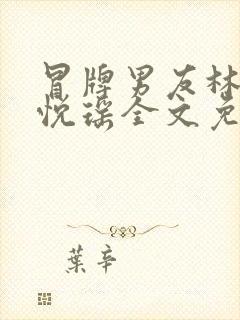 冒牌男友林
悦瑶全文免
葉辛